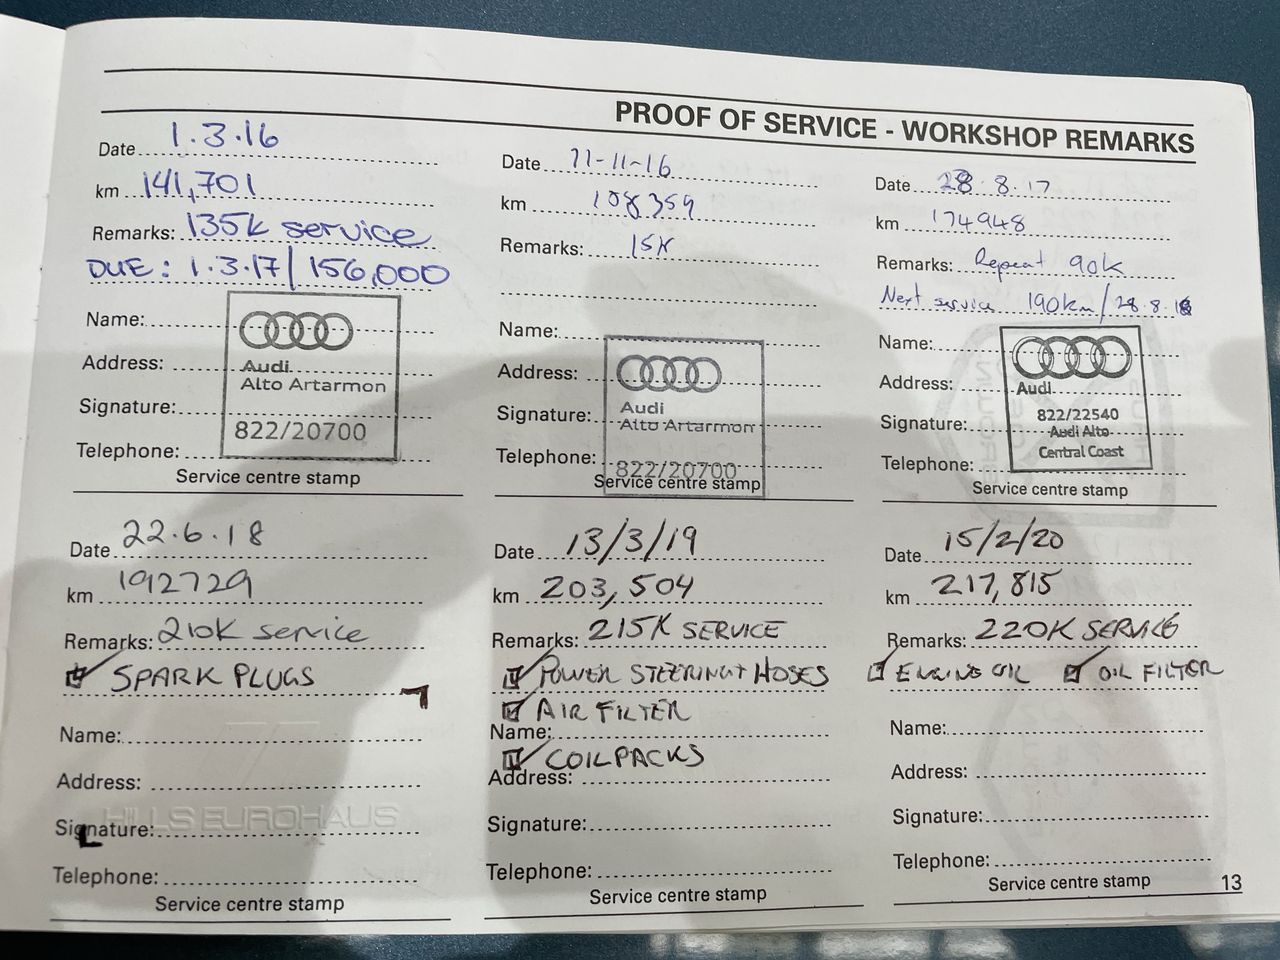 PROOF OF SERVICE - WORKSHOP REMARKS
Date 1.3.16
km 141,701
Remarks: 135k service
DUE: 1.3.17 | 156,000
Name:
Audi
Address:
Alto Artarmon
Signature:
822/20700
Telephone:
Service centre stamp
Date 11-11-16
km 108359
Remarks: 15K
Name:
Address:
Audi
Signature:
Alto Artarmon
Telephone:
822/20700
Service centre stamp
Date 28.8.17
km 174948
Remarks: Repeat 90k
Next service 190km/28.8.18
Name:
Address:
Audi
822/22540
Signature:
Audi Alto
Central Coast
Telephone:
Service centre stamp
Date 22.6.18
km 192729
Remarks: 210K service
SPARK PLUGS
Name:
Address:
HILLS EUROHAUS
Signature:
Telephone:
Service centre stamp
Date 13/3/19
km 203,504
Remarks: 215K SERVICE
POWER STEERING+HOSES
AIR FILTER
Name:
COILPACKS
Address:
Signature:
Telephone:
Service centre stamp
Date 15/2/20
km 217,815
Remarks: 220K SERVICE
ENGINE OIL OIL FILTER
Name:
Address:
Signature:
Telephone:
Service centre stamp
13